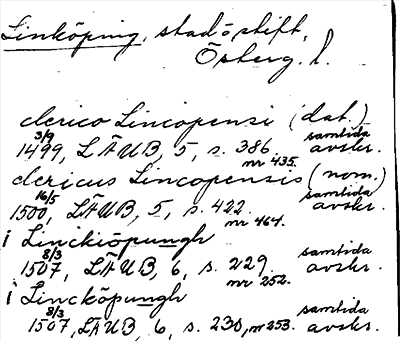 Linköping, stad o stift,
Österg. l.
clerico Lincopensi (dat.)
3/9 1499, LÄUB, 5, s. 386. nr 435. samtida avskr.
clericus Lincopensis (nom.)
16/5 1500, LÄUB, 5, s. 422. nr 464. samtida avskr.
i Linckiöpungh
8/3 1507, LÄUB, 6, s. 229. nr 252. samtida avskr.
i Lincköpungh
8/3 1507, LÄUB, 6, s. 230, nr 253. samtida avskr.